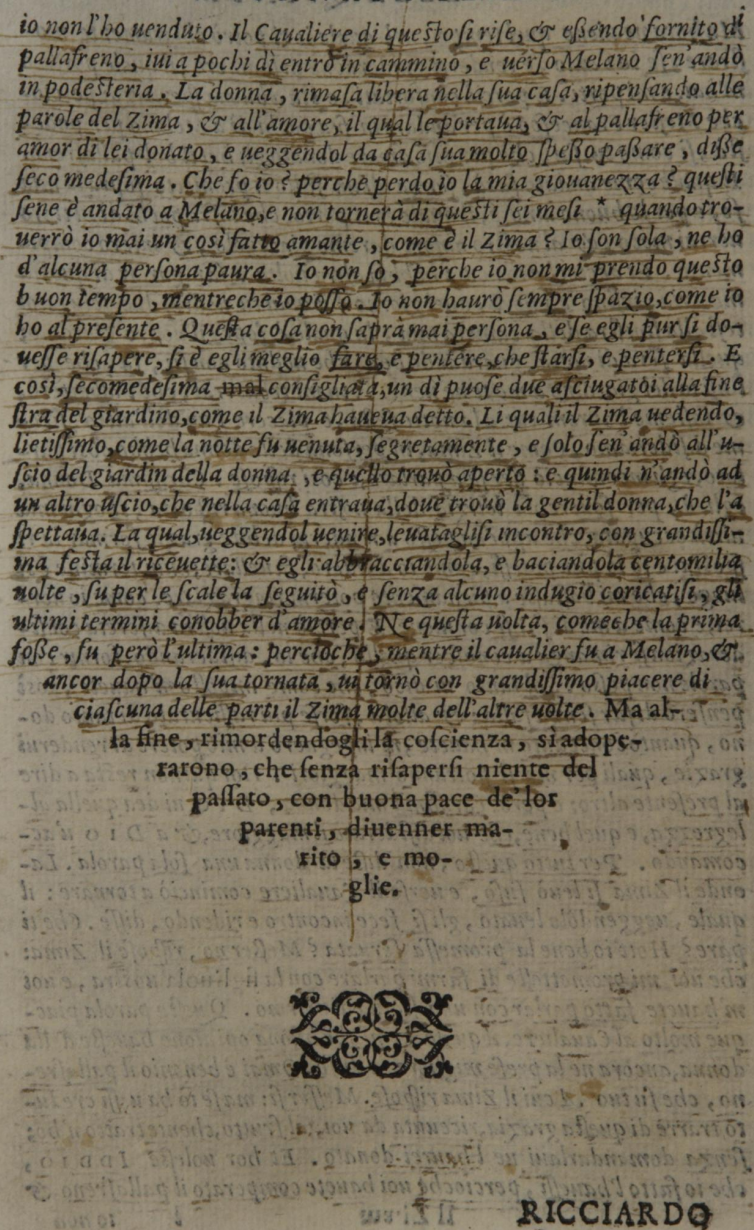 io non l'ho uenduto. Il Caualiere di questo si rise, & eßendo fornito di
pallafreno, iui a pochi dì entrò in cammino, e uerso Melano sen'andò
in podesteria. La donna, rimasa libera nella sua casa, ripensando alle
parole del Zima, & all'amore, il qual le portaua, & al pallafreno per
amor di lei donato, e ueggendol da casa sua molto speßo paßare, diße
seco medesima. Che fo io? perche perdo io la mia giouanezza? questi
sene è andato a Melano, e non tornerà di questi sei mesi * quando tro-
uerrò io mai un così fatto amante, come è il Zima? Io son sola, ne ho
d'alcuna persona paura. Io non sò, perche io non mi prendo questo
buon tempo, mentreche io posso. Io non haurò sempre spazio, come io
ho al presente. Questa cosa non saprà mai persona, e se egli pur si do-
uesse risapere, si è egli meglio fare, e pentere, che starsi, e pentersi. E
così, secomedesima mal consigliata, un dì puose due asciugatoi alla fine
stra del giardino, come il Zima haueua detto. Li quali il Zima uedendo,
lietissimo, come la notte fu uenuta, segretamente, e solo sen'andò all'u-
scio del giardin della donna, e quello trouò aperto: e quindi n'andò ad
un altro uscio, che nella casa entraua, doue trouò la gentil donna, che l'a
spettaua. La qual, ueggendol uenire, leuataglisi incontro, con grandissi-
ma festa il riceuette: & egli abbracciandola, e baciandola centomilia
uolte, su per le scale la seguitò, e senza alcuno indugio coricatisi, gli
ultimi termini conobber d'amore. Ne questa uolta, comeche la prima
foße, fu però l'ultima: percioche, mentre il caualier fu a Melano, &
ancor dopo la sua tornata, ui tornò con grandissimo piacere di
ciascuna delle parti il Zima molte dell'altre uolte. Ma al-
la fine, rimordendogli la coscienza, sì adope-
rarono, che senza risapersi niente del
passato, con buona pace de' lor
parenti, diuenner ma-
rito, e mo-
glie.
RICCIARDO